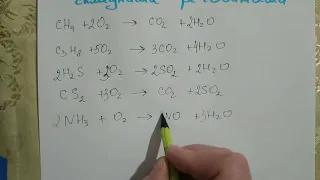 CH4 + 2O2 → CO2 + 2H2O
C3H8 + 5O2 → 3CO2 + 4H2O
2H2S + 3O2 → 2SO2 + 2H2O
CS2 + 3O2 → CO2 + 2SO2
2NH3 + O2 → NO + 3H2O